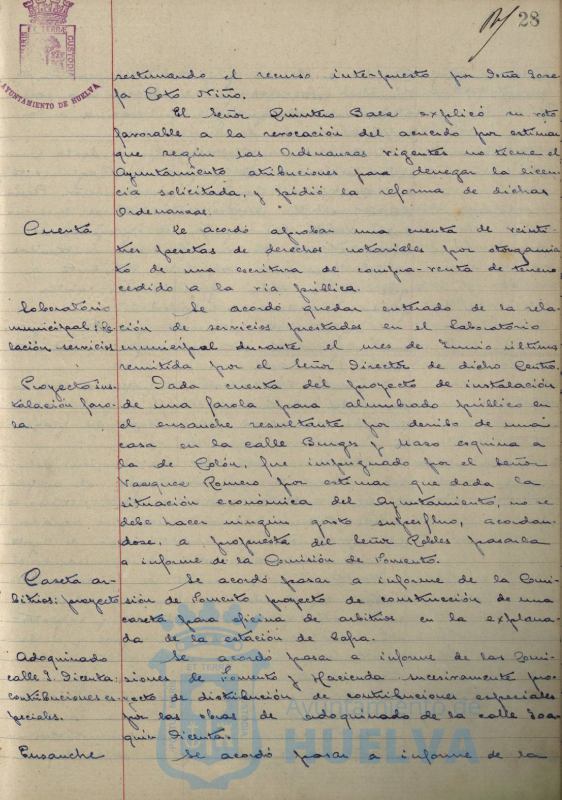 28
ET TERRA CUSTODIA
AYUNTAMIENTO DE HUELVA
restimando el recurso interpuesto por Doña Jose
fa Coto Niño.
El Señor Quintero Baez explicó su voto
favorable a la revocación del acuerdo por estimar
que según las Ordenanzas vigentes no tiene el
Ayuntamiento atribuciones para denegar la licen
cia solicitada, y pidió la reforma de dichas
Ordenanzas.
Cuenta
Se acordó aprobar una cuenta de veinti
tres pesetas de derechos notariales por otorgamien
to de una escritura de compra-venta de terreno
cedido a la via pública.
Laboratorio
municipal: Re
lación servicios
Se acordó quedar enterado de la rela
ción de servicios prestados en el Laboratorio
municipal durante el mes de Junio último
remitida por el Señor Director de dicho Centro.
Proyecto ins
talación faro
la.
Dada cuenta del proyecto de instalación
de una farola para alumbrado público en
el ensanche resultante por derribo de una
casa en la calle Burgos y Mazo esquina a
la de Colón, fue impugnado por el Señor
Vazquez Romero por estimar que dada la
situación económica del Ayuntamiento, no se
debe hacer ningún gasto superfluo, acordan
dose, a propuesta del Señor Robles pasarla
a informe de la Comisión de Fomento.
Caseta ar-
bitrios; proyecto
Se acordó pasar a informe de la Comi
sión de Fomento proyecto de construcción de una
caseta para oficina de arbitrios en la explana
da de la estación de Zafra.
Adoquinado
calle J. Dicenta:
contribuciones es
peciales.
Se acordó pasar a informe de las Comi
siones de Fomento y Hacienda sucesivamente pro
yecto de distribución de contribuciones especiales
por las obras de adoquinado de la calle Joa
quin Dicenta.
Ensanche
Se acordó pasar a informe de la
Ayuntamiento de
HUELVA